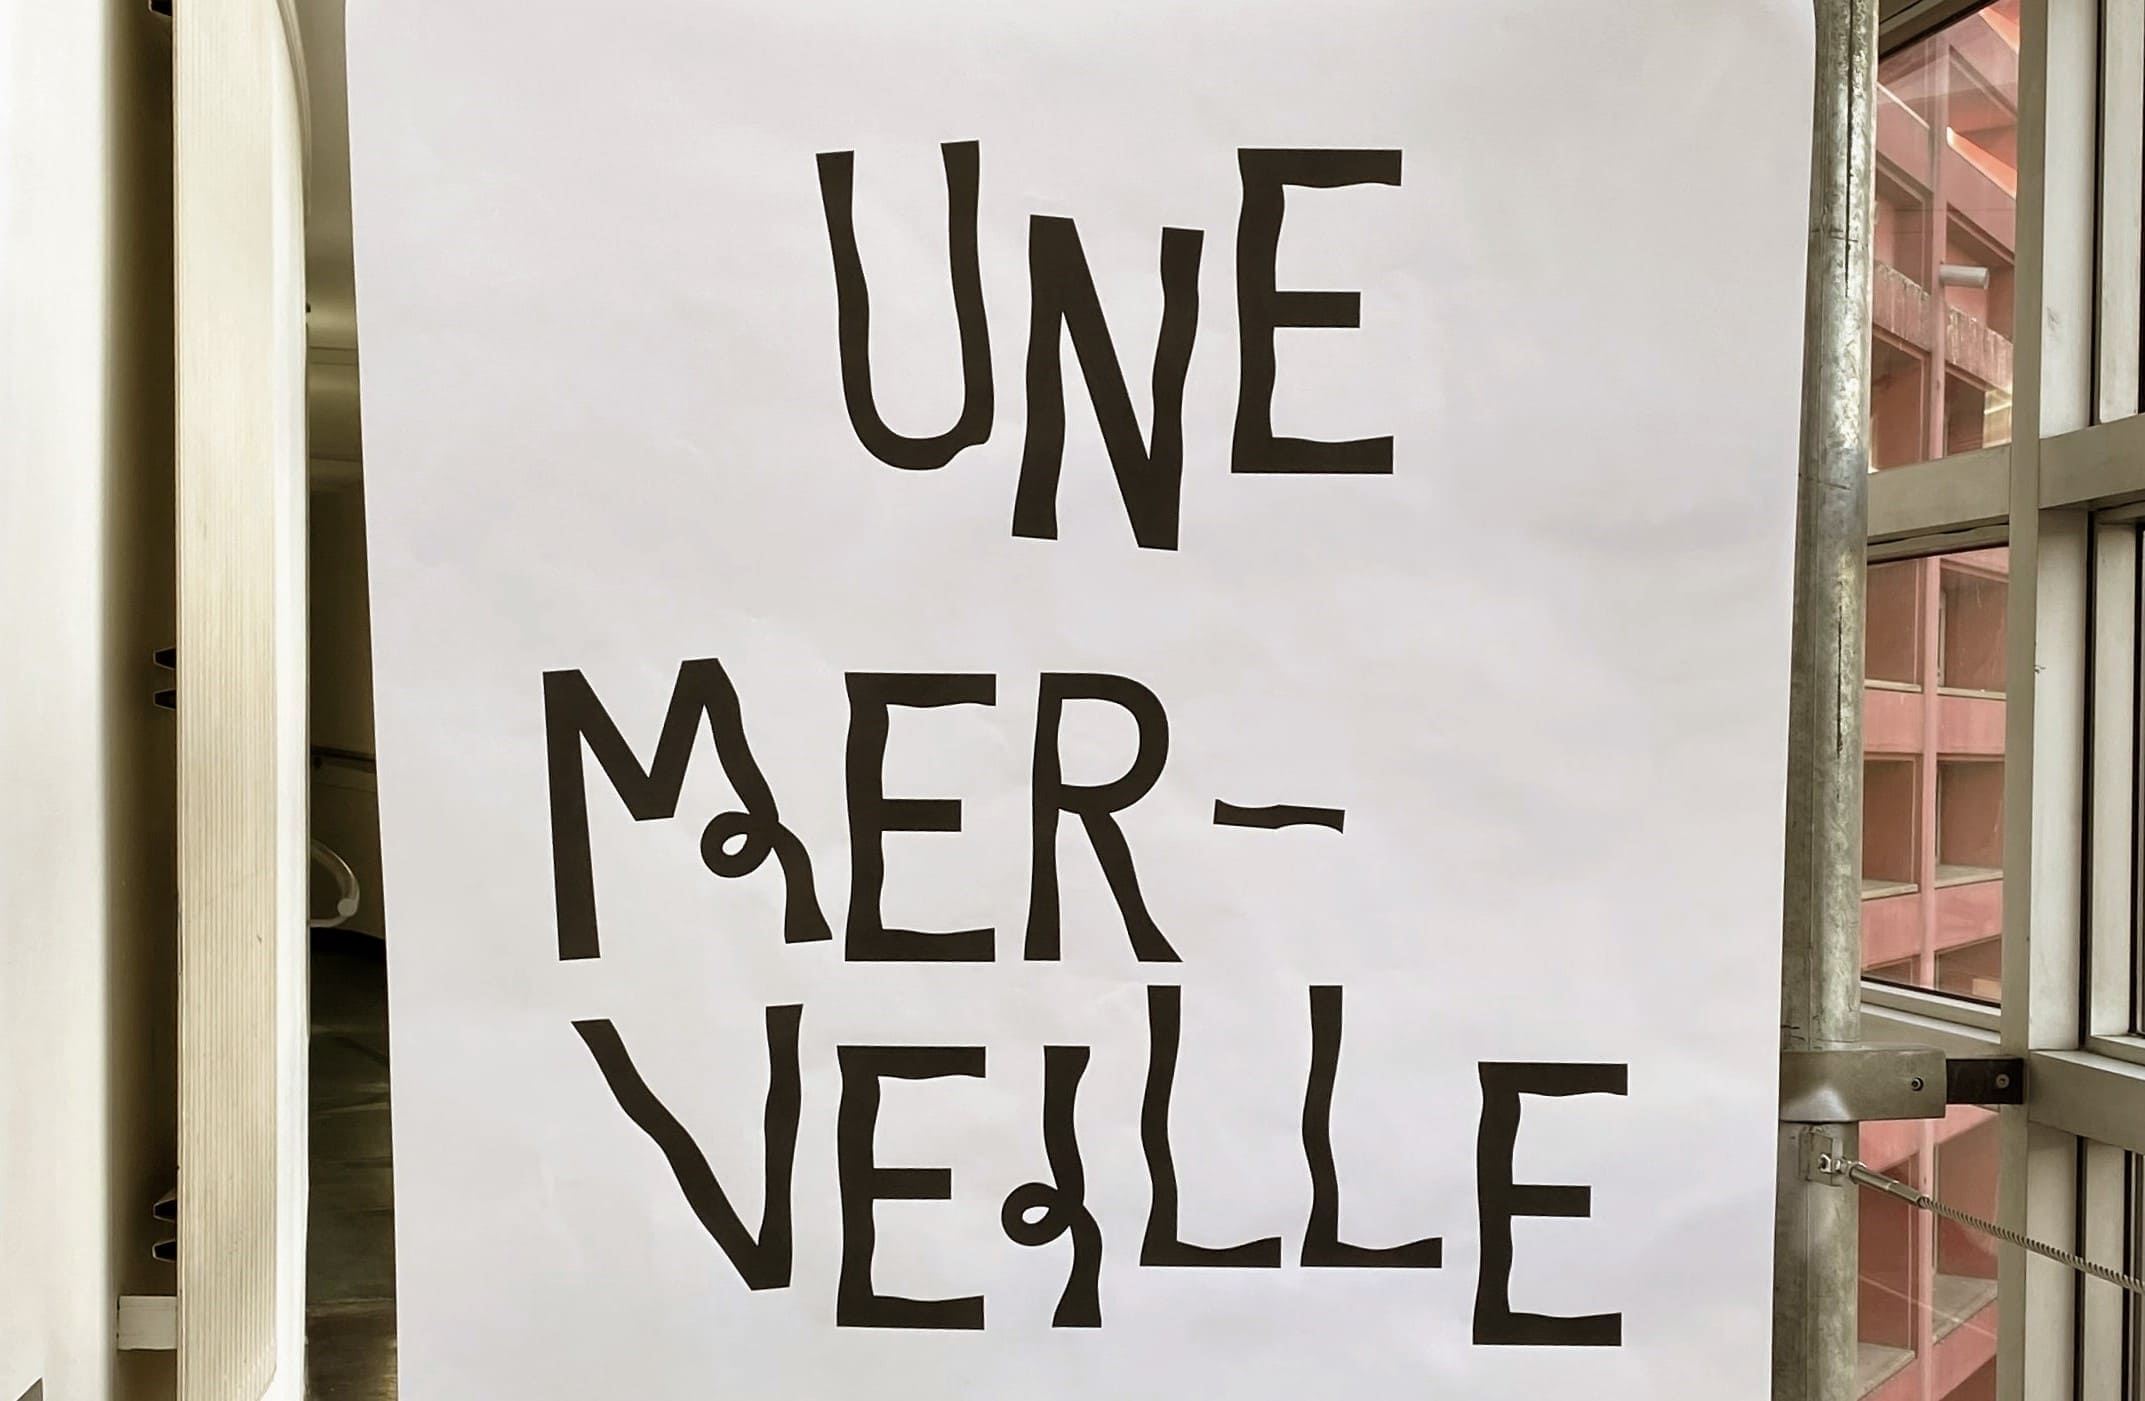 UNE
MER-
VEILLE